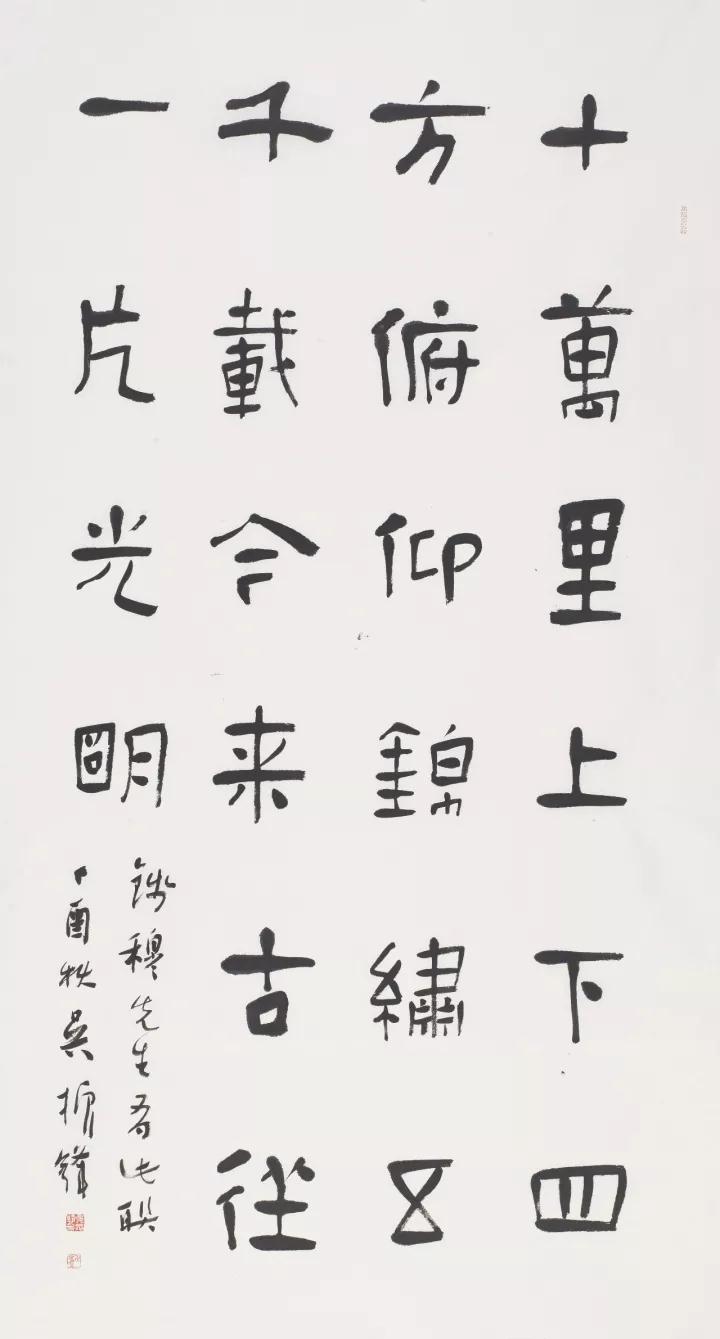 十萬里上下四
方俯仰錦繡五
千載今来古往
一片光明
錢穆先生有此联
丁酉秋吴振鋒